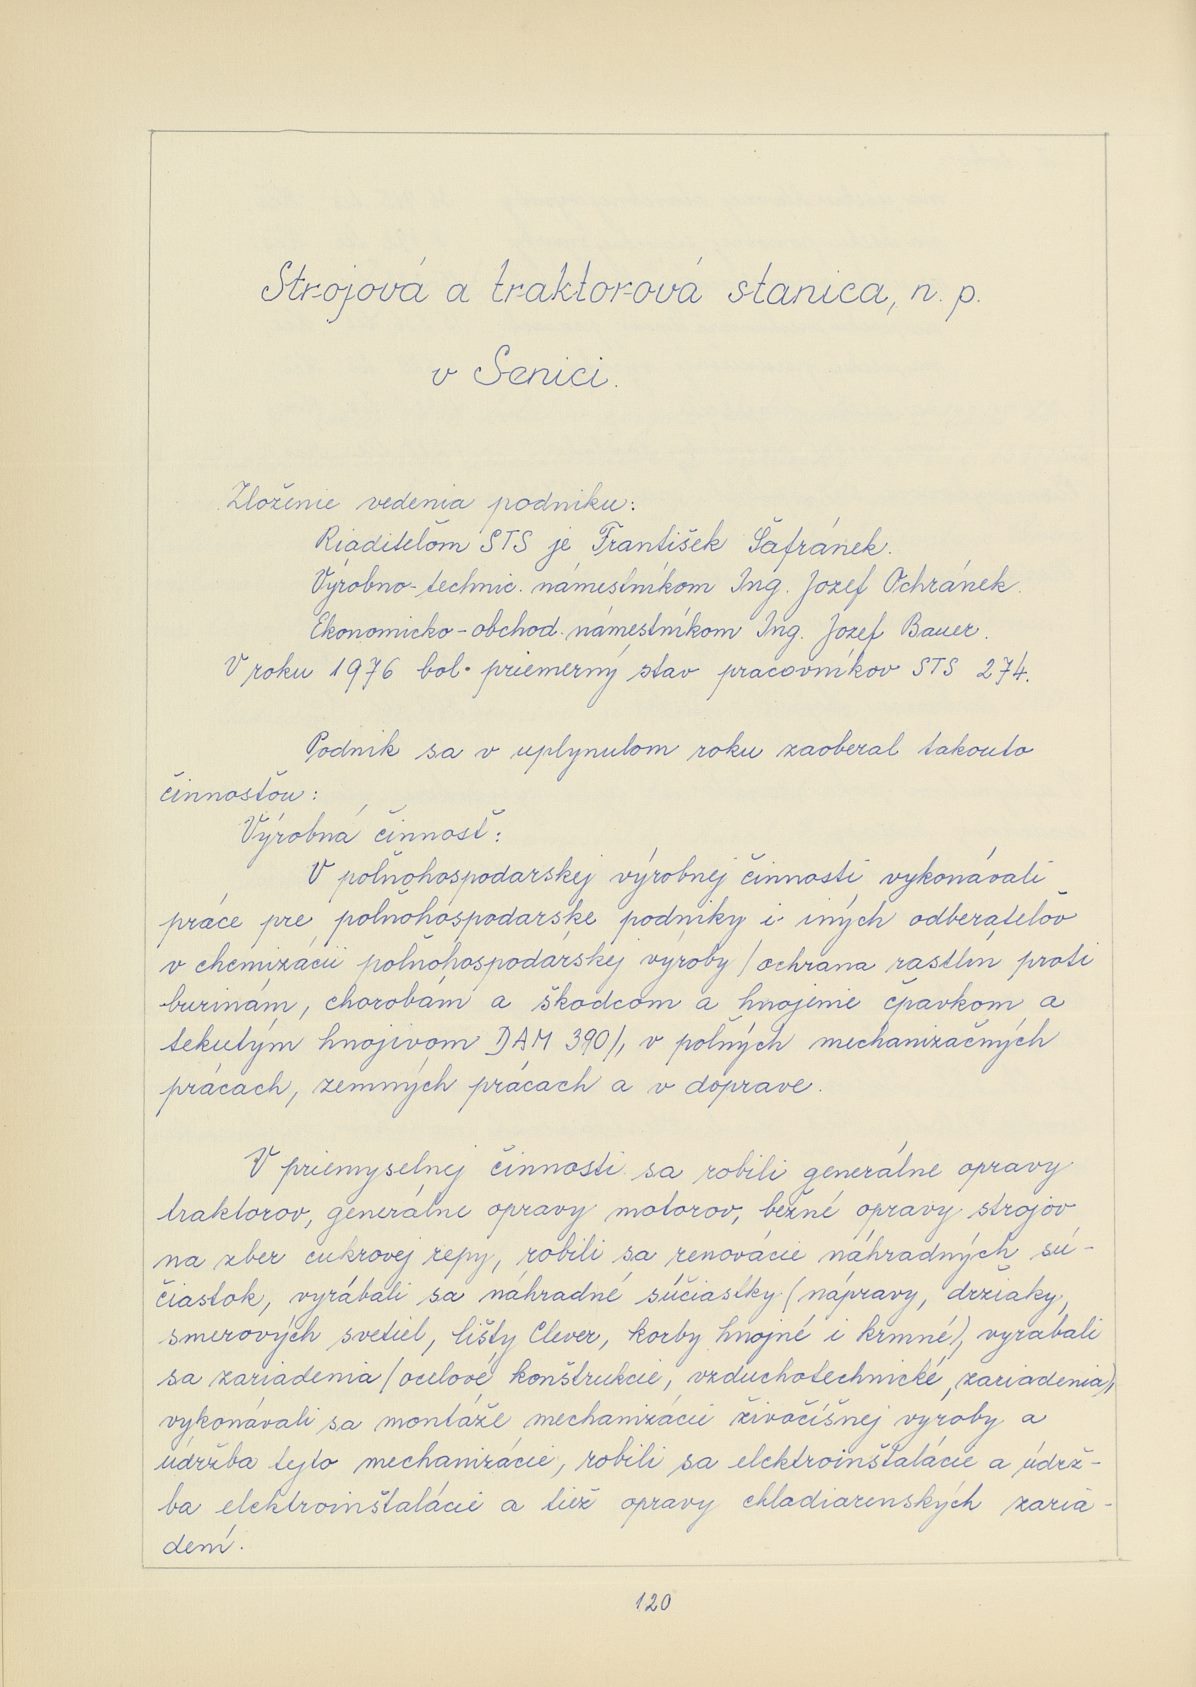 Strojová a traktorová stanica, n. p.
v Senici.
Zloženie vedenia podniku:
Riaditeľom STS je František Šafránek.
Výrobno-technic. námestníkom Ing. Jozef Ochránek.
Ekonomicko-obchod. námestníkom Ing. Jozef Bauer.
V roku 1976 bol priemerný stav pracovníkov STS 274.
Podnik sa v uplynulom roku zaoberal takouto
činnosťou:
Výrobná činnosť:
V poľnohospodarskej výrobnej činnosti vykonávali
práce pre poľnohospodarske podniky i iných odberateľov
v chemizácii poľnohospodárskej výroby /ochrana rastlín proti
burinám, chorobám a škodcom a hnojenie čpavkom a
tekutým hnojivom DAM 390/, v poľných mechanizačných
prácach, zemných prácach a v doprave.
V priemyselnej činnosti sa robili generálne opravy
traktorov, generálne opravy motorov, bežné opravy strojov
na zber cukrovej repy, robili sa renovácie náhradných sú-
čiastok, vyrábali sa náhradné súčiastky (nápravy, držiaky,
smerových svetiel, lišty Clever, korby hnojné i krmné), vyrábali
sa zariadenia /ocelové konštrukcie, vzduchotechnické zariadenia/,
vykonávali sa montáže mechanizácie živočíšnej výroby a
údržba tejto mechanizácie, robili sa elektroinštalácie a údrž-
ba elektroinštalácie a tiež opravy chladiarenských zaria-
dení.
120